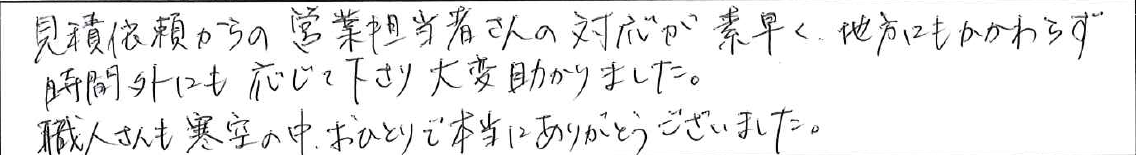 見積依頼からの営業担当者さんの対応が素早く、地方にもかかわらず
時間外にも応じて下さり大変助かりました。
職人さんも寒空の中、おひとりで本当にありがとうございました。